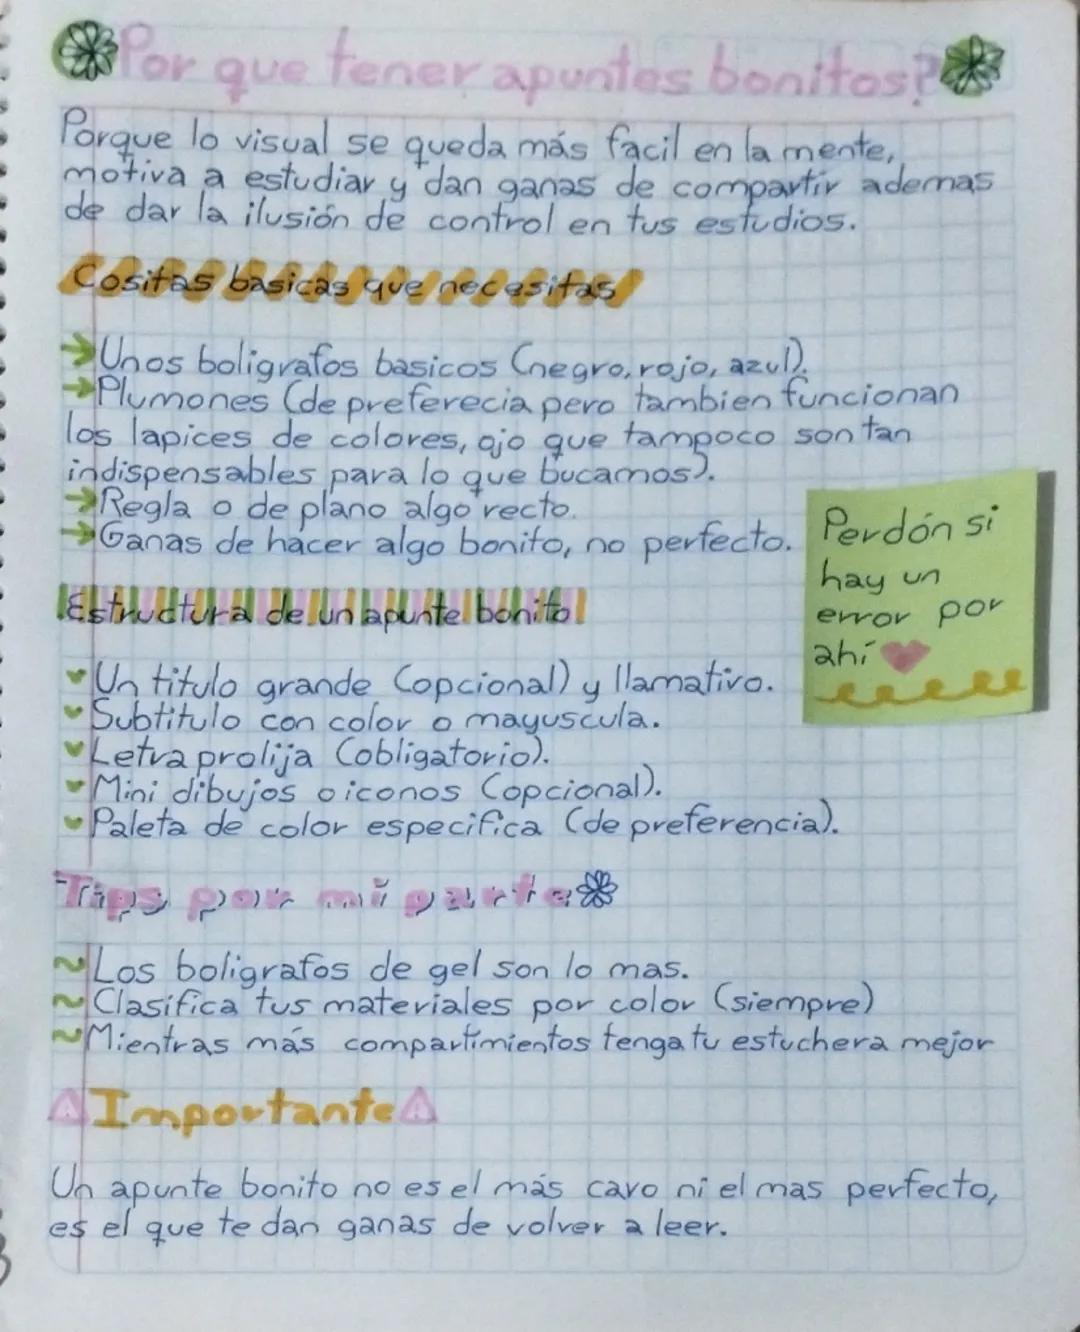 Por que tener apuntes bonitos?
Porque lo visual se queda más facil en la mente,
motiva a estudiar y dan ganas de compartir ademas
de dar la ilusión de control en tus estudios.
Cositas basicas que necesitas
→Unos boligrafos basicos (negro, rojo, azul).
→Plumones (de preferecia pero tambien funcionan
los lapices de colores, ojo que tampoco son tan
indispensables para lo que bucamos).
→Regla o de plano algo recto.
→Ganas de hacer algo bonito, no perfecto.
Perdón si
hay un
error por
ahí
Estructura de un apunte bonito
Un titulo grande (opcional) y llamativo.
Subtitulo con color o mayuscula.
Letra prolija (obligatorio).
Mini dibujos o iconos (opcional).
Paleta de color especifica (de preferencia).
Tips por mi parte
~Los boligrafos de gel son lo mas.
~Clasifica tus materiales por color (siempre)
~Mientras más compartimientos tenga tu estuchera mejor
Importante
Un apunte bonito no es el más caro ni el mas perfecto,
es el que te dan ganas de volver a leer.